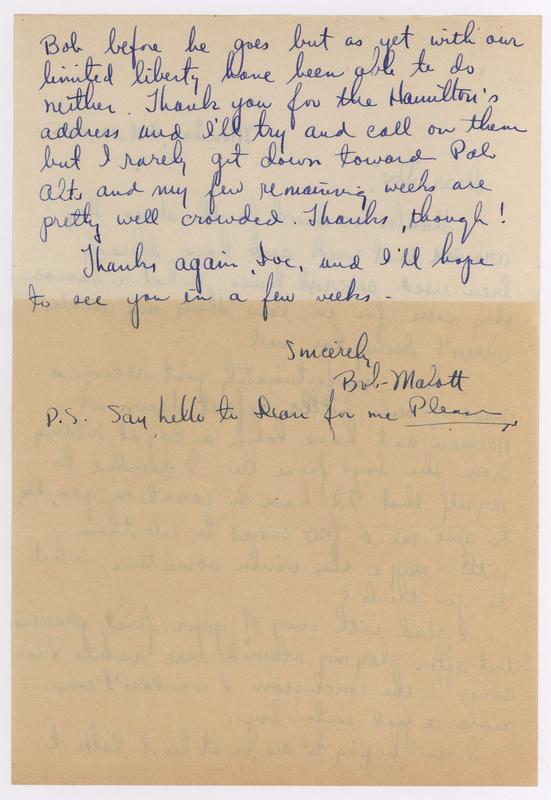 Bob before he goes but as yet with our
limited liberty have been able to do
neither. Thank you for the Hamilton's
address and I'll try and call on them
but I rarely get down toward Palo
Alto and my few remaining weeks are
pretty well crowded. Thanks, though!
Thanks again, Doc, and I'll hope
to see you in a few weeks -
Sincerely
Bob Malott
P.S. Say hello to Dean for me Please